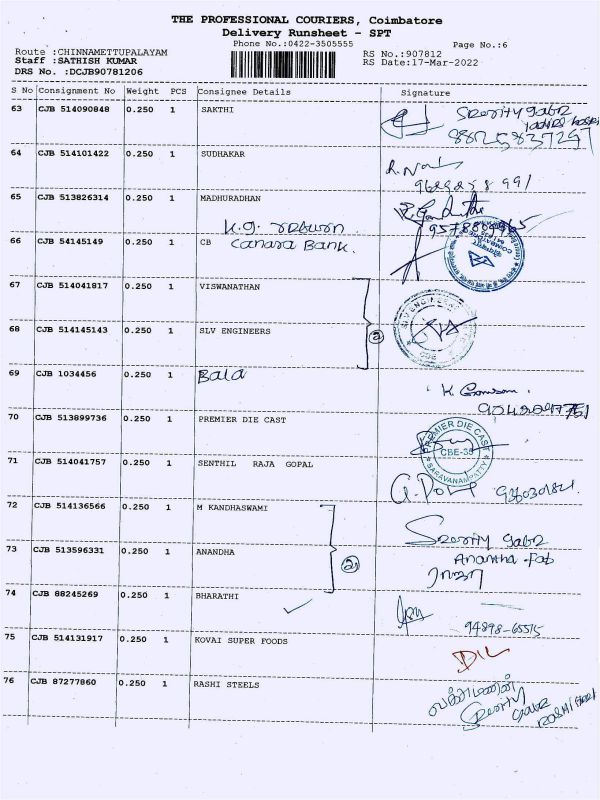 THE PROFESSIONAL COURIERS, Coimbatore
Delivery Runsheet - SPT
Phone No.:0422-3505555
Page No.:6
Route :CHINNAMETTUPALAYAM
Staff :SATHISH KUMAR
DRS No. :DCJB90781206
RS No.:907812
RS Date:17-Mar-2022
S No Consignment No Weight PCS Consignee Details Signature
63 CJB 514090848 0.250 1 SAKTHI
8825837297
64 CJB 514101422 0.250 1 SUDHAKAR
65 CJB 513826314 0.250 1 MADHURADHAN
K.G.
66 CJB 54145149 0.250 1 CB Canara Bank.
67 CJB 514041817 0.250 1 VISWANATHAN
68 CJB 514145143 0.250 1 SLV ENGINEERS
SLV ENGINEERS
CBE
69 CJB 1034456 0.250 1 Bala
70 CJB 513899736 0.250 1 PREMIER DIE CAST
PREMIER DIE CAST
CBE-35
SARAVANAMPATTY
71 CJB 514041757 0.250 1 SENTHIL RAJA GOPAL
72 CJB 514136566 0.250 1 M KANDHASWAMI
73 CJB 513596331 0.250 1 ANANDHA
Anantha Fab
74 CJB 88245269 0.250 1 BHARATHI
94898-65515
75 CJB 514131917 0.250 1 KOVAI SUPER FOODS
DIL
76 CJB 87277860 0.250 1 RASHI STEELS